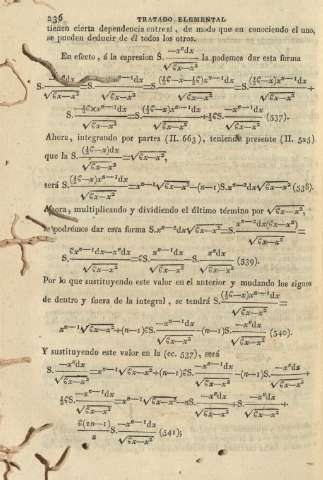 236 TRATADO ELEMENTAL
tienen cierta dependencia entre sí, de modo que en conociendo el uno,
se pueden deducir de él todos los otros.
En efecto, á la espresion S. −xⁿdx/√(ςx−x²) la podemos dar esta forma
S. −xⁿdx/√(ςx−x²) =S. (½ς−x−½ς)xⁿ⁻¹dx/√(ςx−x²) = S. (½ς−x)xⁿ⁻¹dx/√(ςx−x²) +
S. −½ςxⁿ⁻¹dx/√(ςx−x²) =S. (½ς−x)xⁿ⁻¹dx/√(ςx−x²) +½ςS. −xⁿ⁻¹dx/√(ςx−x²) (537).
Ahora, integrando por partes (II. 663), teniendo presente (II. 525)
que la S. (½ς−x)dx/√(ςx−x²) =√(ςx−x²),
será S. (½ς−x)xⁿ⁻¹dx/√(ςx−x²) =xⁿ⁻¹√(ςx−x²)−(n−1)S.xⁿ⁻²dx√(ςx−x²) (538).
Ahora, multiplicando y dividiendo el último término por √(ςx−x²),
le podrémos dar esta forma S.xⁿ⁻²dx√(ςx−x²)=S. xⁿ⁻²dx(ςx−x²)/√(ςx−x²) =
S. ςxⁿ⁻¹dx−xⁿdx/√(ςx−x²) =ςS. xⁿ⁻¹dx/√(ςx−x²) −S. xⁿdx/√(ςx−x²) (539).
Por lo que sustituyendo este valor en el anterior y mudando los signos
de dentro y fuera de la integral, se tendrá S. (½ς−x)xⁿ⁻¹dx/√(ςx−x²) =
xⁿ⁻¹√(ςx−x²)+(n−1)ςS. −xⁿ⁻¹dx/√(ςx−x²) −(n−1)S. −xⁿdx/√(ςx−x²) (540).
Y sustituyendo este valor en la (ec. 537), será
S. −xⁿdx/√(ςx−x²) =xⁿ⁻¹√(ςx−x²)+(n−1)ςS. −xⁿ⁻¹dx/√(ςx−x²) −(n−1)S. −xⁿdx/√(ςx−x²) +
½ςS. −xⁿ⁻¹dx/√(ςx−x²) =xⁿ⁻¹√(ςx−x²)−nS. −xⁿdx/√(ςx−x²) +S. −xⁿdx/√(ςx−x²) +
ς(2n−1)/2 S. −xⁿ⁻¹dx/√(ςx−x²) (541);